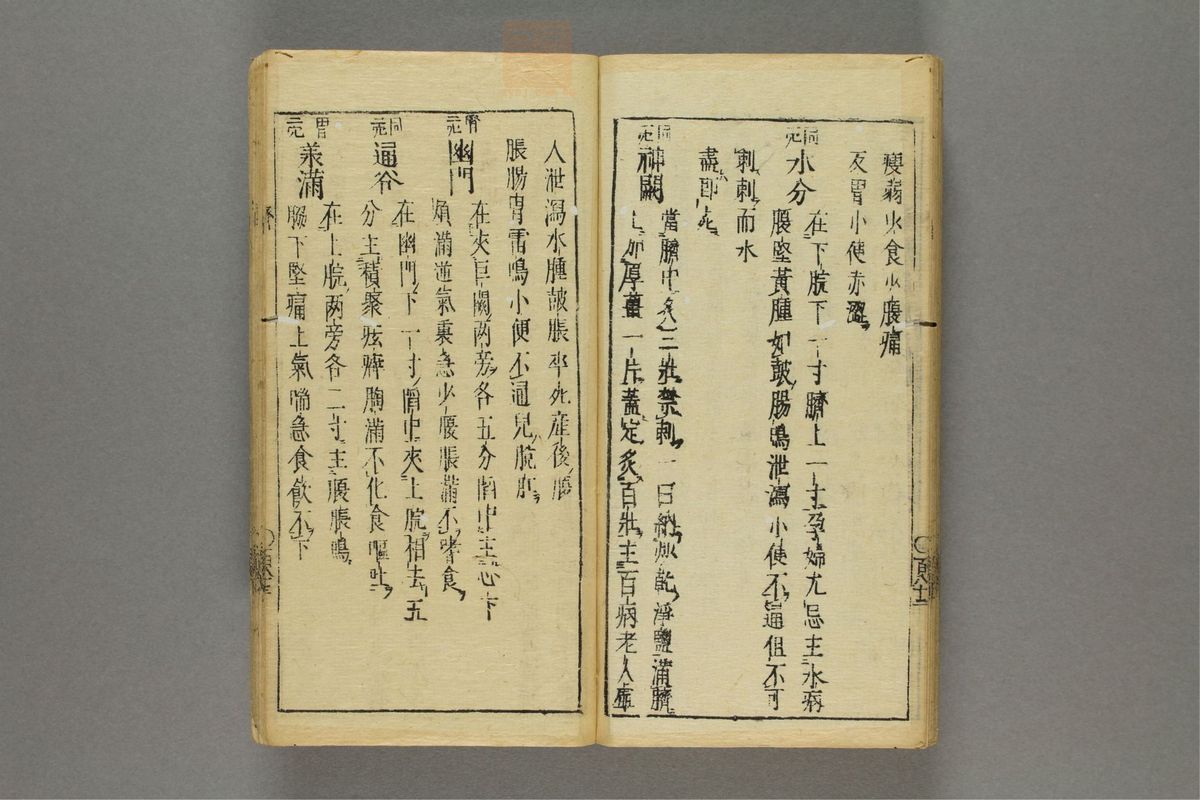 瘦弱少食少腹痛
反胃小便赤澁
同一穴
水分
在下脘下一寸臍上一寸孕婦尤忌主水病
腹堅黃腫如鼓腸鳴泄瀉小便不通但不可
刺刺而水
盡即死
同一穴
神闕
當臍中灸三壯禁刺一曰納炒乾淨鹽滿臍
上加厚薑一片蓋定灸百壯主百病老人虛
人泄瀉水腫鼓脹卒死産後腹
脹腸胃雷鳴小便不通兒脫肛
腎二穴
幽門
在夾巨闕兩旁各五分陷中主心下
煩滿逆氣裏急少腹脹滿不嗜食
同二穴
通谷
在幽門下一寸陷中夾上脘相去五
分主積聚痃癖胸滿不化食嘔吐
胃二穴
承滿
在上脘两旁各二寸主腹脹鳴
脇下堅痛上氣喘急食飲不下